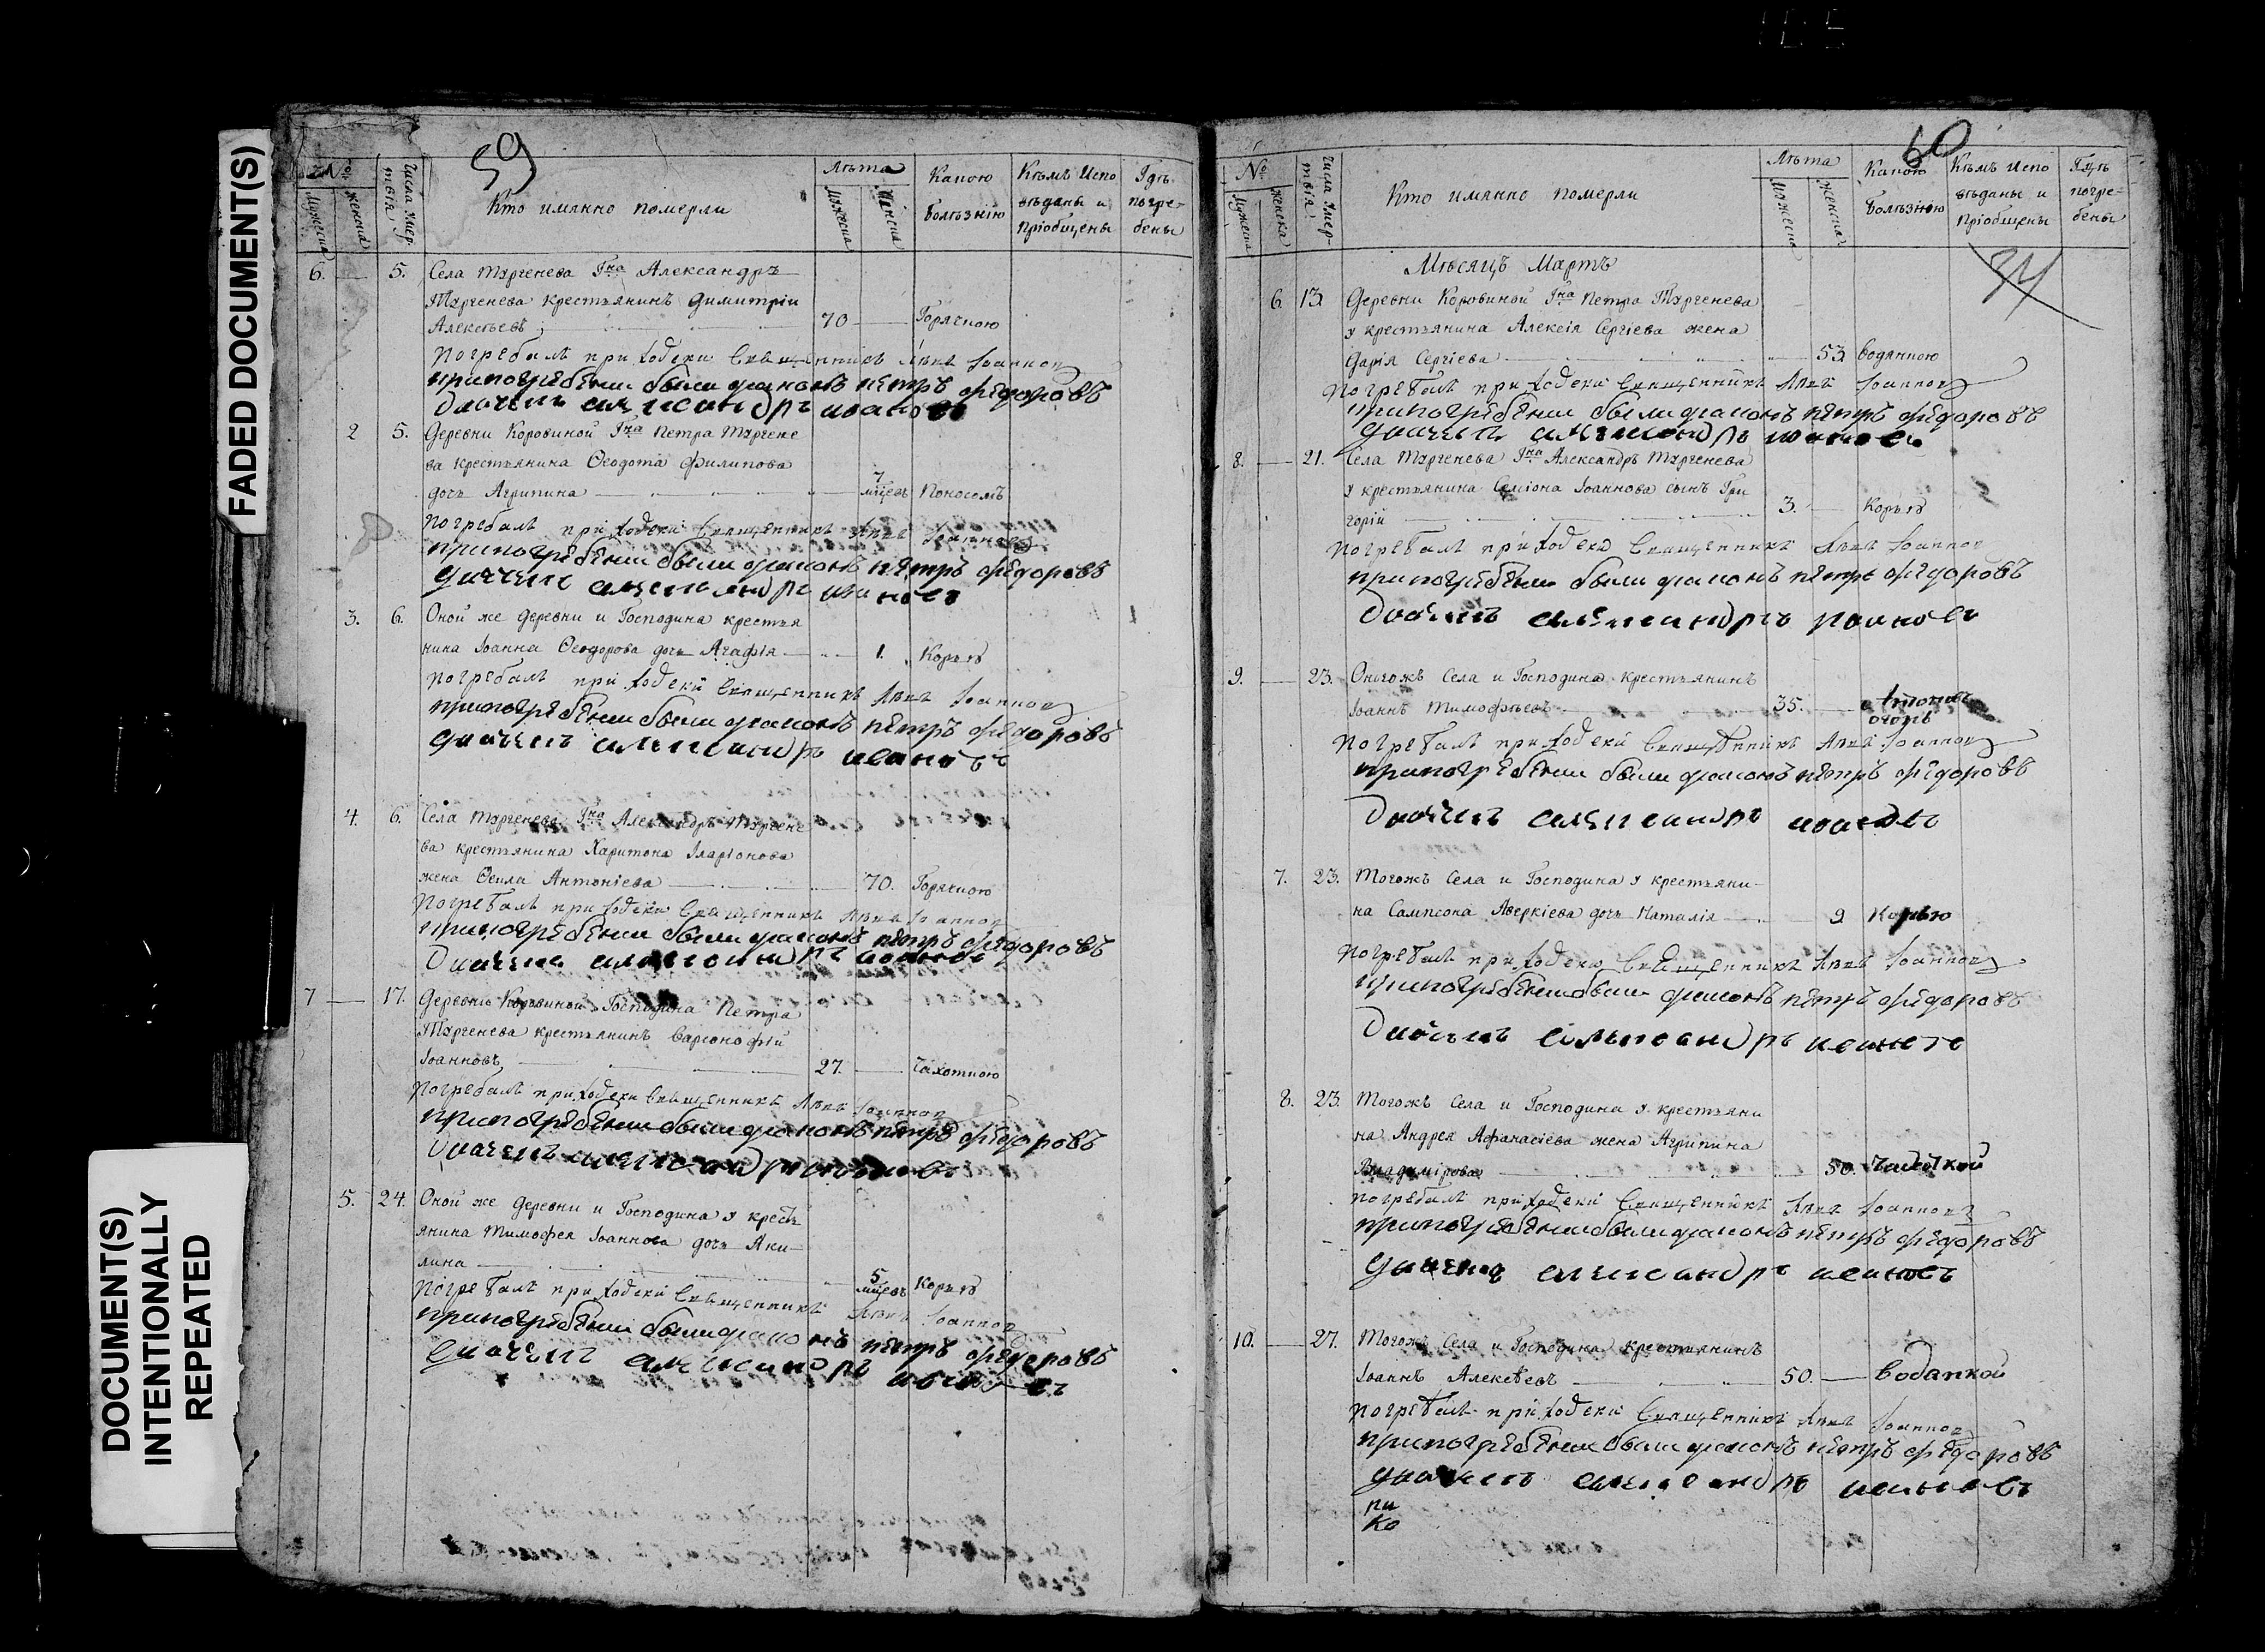 FADED DOCUMENT(S)
DOCUMENT(S)
INTENTIONALLY
REPEATED
59
№
Мужеска
Женска
Числа Умер-
твія
Кто имянно померли
Лѣта
Мужеска
Женска
Какою
болѣзнію
Кѣмъ Испо
вѣданы и
Пріобщены
Гдѣ
погре-
бены
6. 5. Села Тургенева Гна Александръ
Тургенева крестьянинъ Димитрій
Алексѣевъ 70 Горячкою
Погребалъ приходски Священникъ Левъ Іоанновъ
при погребении были диаконъ петръ федоровъ
Дьячекъ александръ иванов
2 5. Деревни Коровиной Гна Петра Тургене
ва крестьянина Ѳеодота Филипова
дочь Агрипина 7 мцевъ Поносомъ
Погребалъ приходски Священникъ Левъ Іоанновъ
при погребении были диаконъ петръ федоровъ
Дьячекъ александръ иванов
3. 6. Оной же деревни и Господина крестья
нина Іоанна Ѳеодорова дочь Агафія 1. Корью
Погребалъ приходски Священникъ Левъ Іоанновъ
при погребении были диаконъ петръ федоровъ
Дьячекъ александръ иванов
4. 6. Села Тургенева Гна Александръ Тургене
ва крестьянина Харитона Иларіонова
жена Ѳекла Антоніева 70. Горячкою
Погребалъ приходски Священникъ Левъ Іоаннов
при погребении были диаконъ петръ федоровъ
Дьячекъ александръ иванов
7 17. Деревни Коровиной Господина Петра
Тургенева крестьянинъ Варсонофій
Іоанновъ 27. Чахоткою
Погребалъ приходски Священникъ Левъ Іоаннов
при погребении были диаконъ петръ федоровъ
Дьячекъ александръ иванов
5. 24. Оной же деревни и Господина у кресть
янина Тимофея Іоаннова дочь Аки-
лина 5 мцевъ Корью
Погребалъ приходски Священникъ Левъ Іоаннов
при погребении были диаконъ петръ федоровъ
Дьячекъ александръ иванов
60
№
Мужеска
Женска
Числа Умер-
твія
Кто имянно померли
Лѣта
Мужеска
Женска
Какою
болѣзнію
Кѣмъ Испо
вѣданы и
Пріобщены
Гдѣ
погре-
бены
Мѣсяцъ Мартъ
6 13. Деревни Коровиной Гна Петра Тургенева
у крестьянина Алексія Сергіева жена
Дарія Сергіева 53. Водянкою
Погребалъ приходски Священникъ Левъ Іоаннов
при погребении были диаконъ петръ федоровъ
Дьячекъ александръ иванов
8. 21. Села Тургенева Гна Александръ Тургенева
у крестьянина Семіона Іоаннова сынъ Гри
горій 3. Корью
Погребалъ приходски Священникъ Левъ Іоаннов
при погребении были диаконъ петръ федоровъ
Дьячекъ александръ иванов
9. 23. Оногожъ Села и Господина крестьянинъ
Іоаннъ Тимофѣевъ 35.
Погребалъ приходски Священникъ Левъ Іоаннов
при погребении были диаконъ петръ федоровъ
Дьячекъ александръ иванов
7. 23. Тогожъ Села и Господина у крестьяни-
на Сампсона Аверкіева дочь Наталія 9 Корью
Погребалъ приходски Священникъ Левъ Іоаннов
при погребении были диаконъ петръ федоровъ
Дьячекъ александръ иванов
8. 23. Тогожъ Села и Господина у крестьяни
на Андрея Афанасіева жена Агрипина
Владимірова 50. Чахоткой
Погребалъ приходски Священникъ Левъ Іоаннов
при погребении были диаконъ петръ федоровъ
Дьячекъ александръ иванов
10. 27. Тогожъ Села и Господина крестьянинъ
Іоаннъ Алексѣевъ 50. Водянкой
Погребалъ приходски Священникъ Левъ Іоаннов
при погребении были диаконъ петръ федоровъ
Дьячекъ александръ иванов